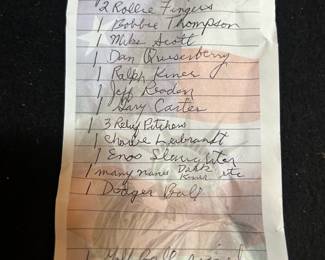 #2 Rollie Fingers
1 Bobbie Thompson
1 Mike Scott
1 Dan Quisenberry
1 Ralph Kiner
1 Jeff Gooden
Gary Carter
1 3 Relief Pitchers
1 Charlie Leibrandt
1 Enos Slaughter
1 many names Dark Kiner etc
1 Dodger Ball
1 Ball signed